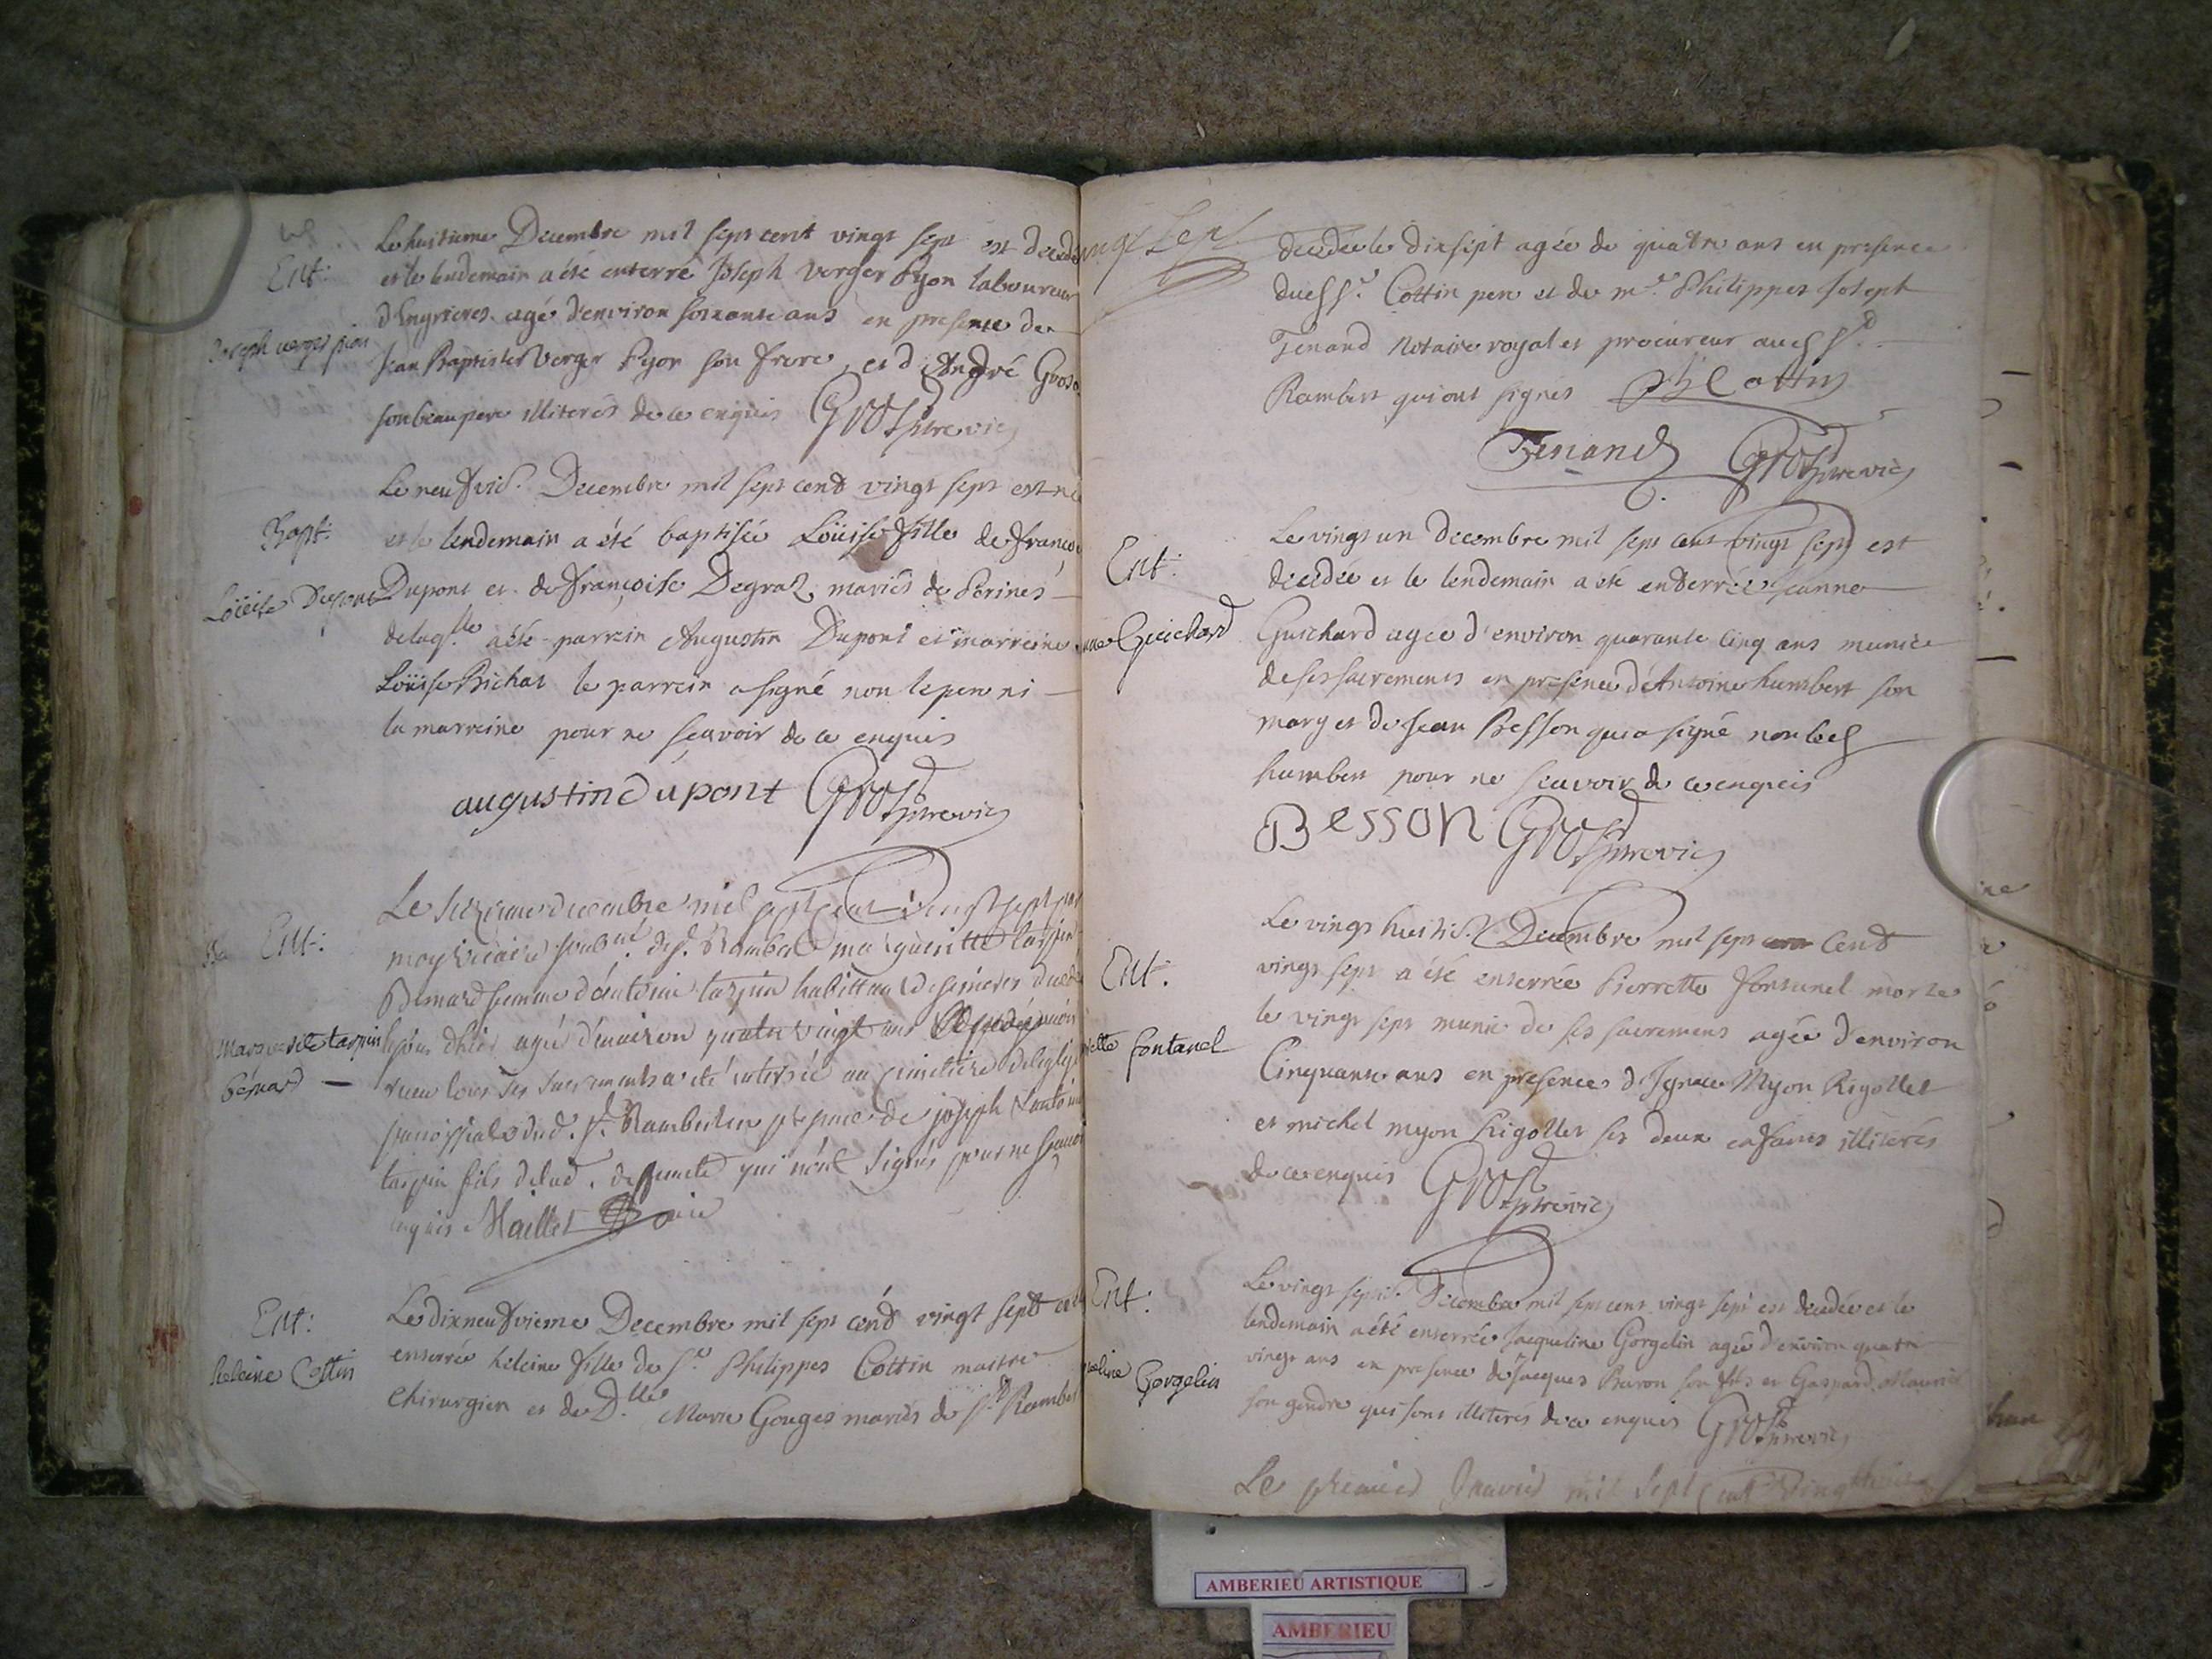 Ent:
Joseph verger pion
Le huitieme Decembre mil sept cent vingt sept est decedé
et le lendemain a été enterré Joseph Verger Pyon laboureur
d'Engrieres agé d'environ soixante ans en presence de
Jean Baptiste Verger Pyon son frere, et d'André Gros
son beau pere illiterés de ce enquis Gros
Bapt:
Loüise Dupont
Le neufvie. Decembre mil sept cent vingt sept est née
et le lendemain a été baptisée Loüise fille de françois
Dupont et de françoise Degraz mariés de Perines
delaqlle a été parrein Augustin Dupont et marreine
Loüise Bichat le parrein a signé non le pere ni
la marreine pour ne sçavoir de ce enquis
augustin dupont Gros
Ent:
Marguerite tarpin
bernard
Le seizieme decembre mil sept cent vingt sept par
moy vicaire soubné. de st. Rambert marguerite tarpin
Bernard femme d'antoine tarpin habittant
agée d'environ quatre vingt ans
receu tous ses sacrements a été enterrée au cimetiere de leglise
parroissiale dud. st. Rambert en presence de joseph & antoine
tarpin fils de lad. defuncte qui n'ont signés pour ne sçavoir
enquis Maillet
Ent:
heleine Cottin
Le dixneufvieme Decembre mil sept cent vingt sept a été
enterrée heleine fille de sr. Philippes Cottin maitre
chirurgien et de Dlle Marie Gouges mariés de st. Rambert
vingt sept
decedée le dixsept agée de quatre ans en presence
dud sr. Cottin pere et de me. Philippes Joseph
Tenand Notaire royal et procureur aud st.
Rambert qui ont signés Ph Cottin
Tenand Gros
Ent:
Guichard
Le vingt un decembre mil sept cent vingt sept est
decedée et le lendemain a été enterrée Jeanne
Guichard agée d'environ quarante cinq ans munie
de ses sacrements en presence d'Antoine humbert son
mary et de Jean Besson qui a signé non led
humbert pour ne scavoir de ce enquis
Besson Gros
Ent:
fontanel
Le vingt huitie. Decembre mil sept cent
vingt sept a été enterrée Pierrette fontanel morte
le vingt sept munie de ses sacremens agée d'environ
Cinquante ans en presence d'Ignace Myon Rigollet
et michel myon Rigollet ses deux enfans illiterés
de ce enquis Gros
Ent:
Gorgelin
Le vingt septie. Decembre mil sept cent vingt sept est decedée et le
lendemain a été enterrée Jacqueline Gorgelin agée d'environ quatre
vingt ans en presence de Jacques Baron son fils et Gaspard Maurier
son gendre qui sont illiterés de ce enquis Gros
Le premier Janvier mil sept cent vingt huit
AMBERIEU ARTISTIQUE
AMBERIEU